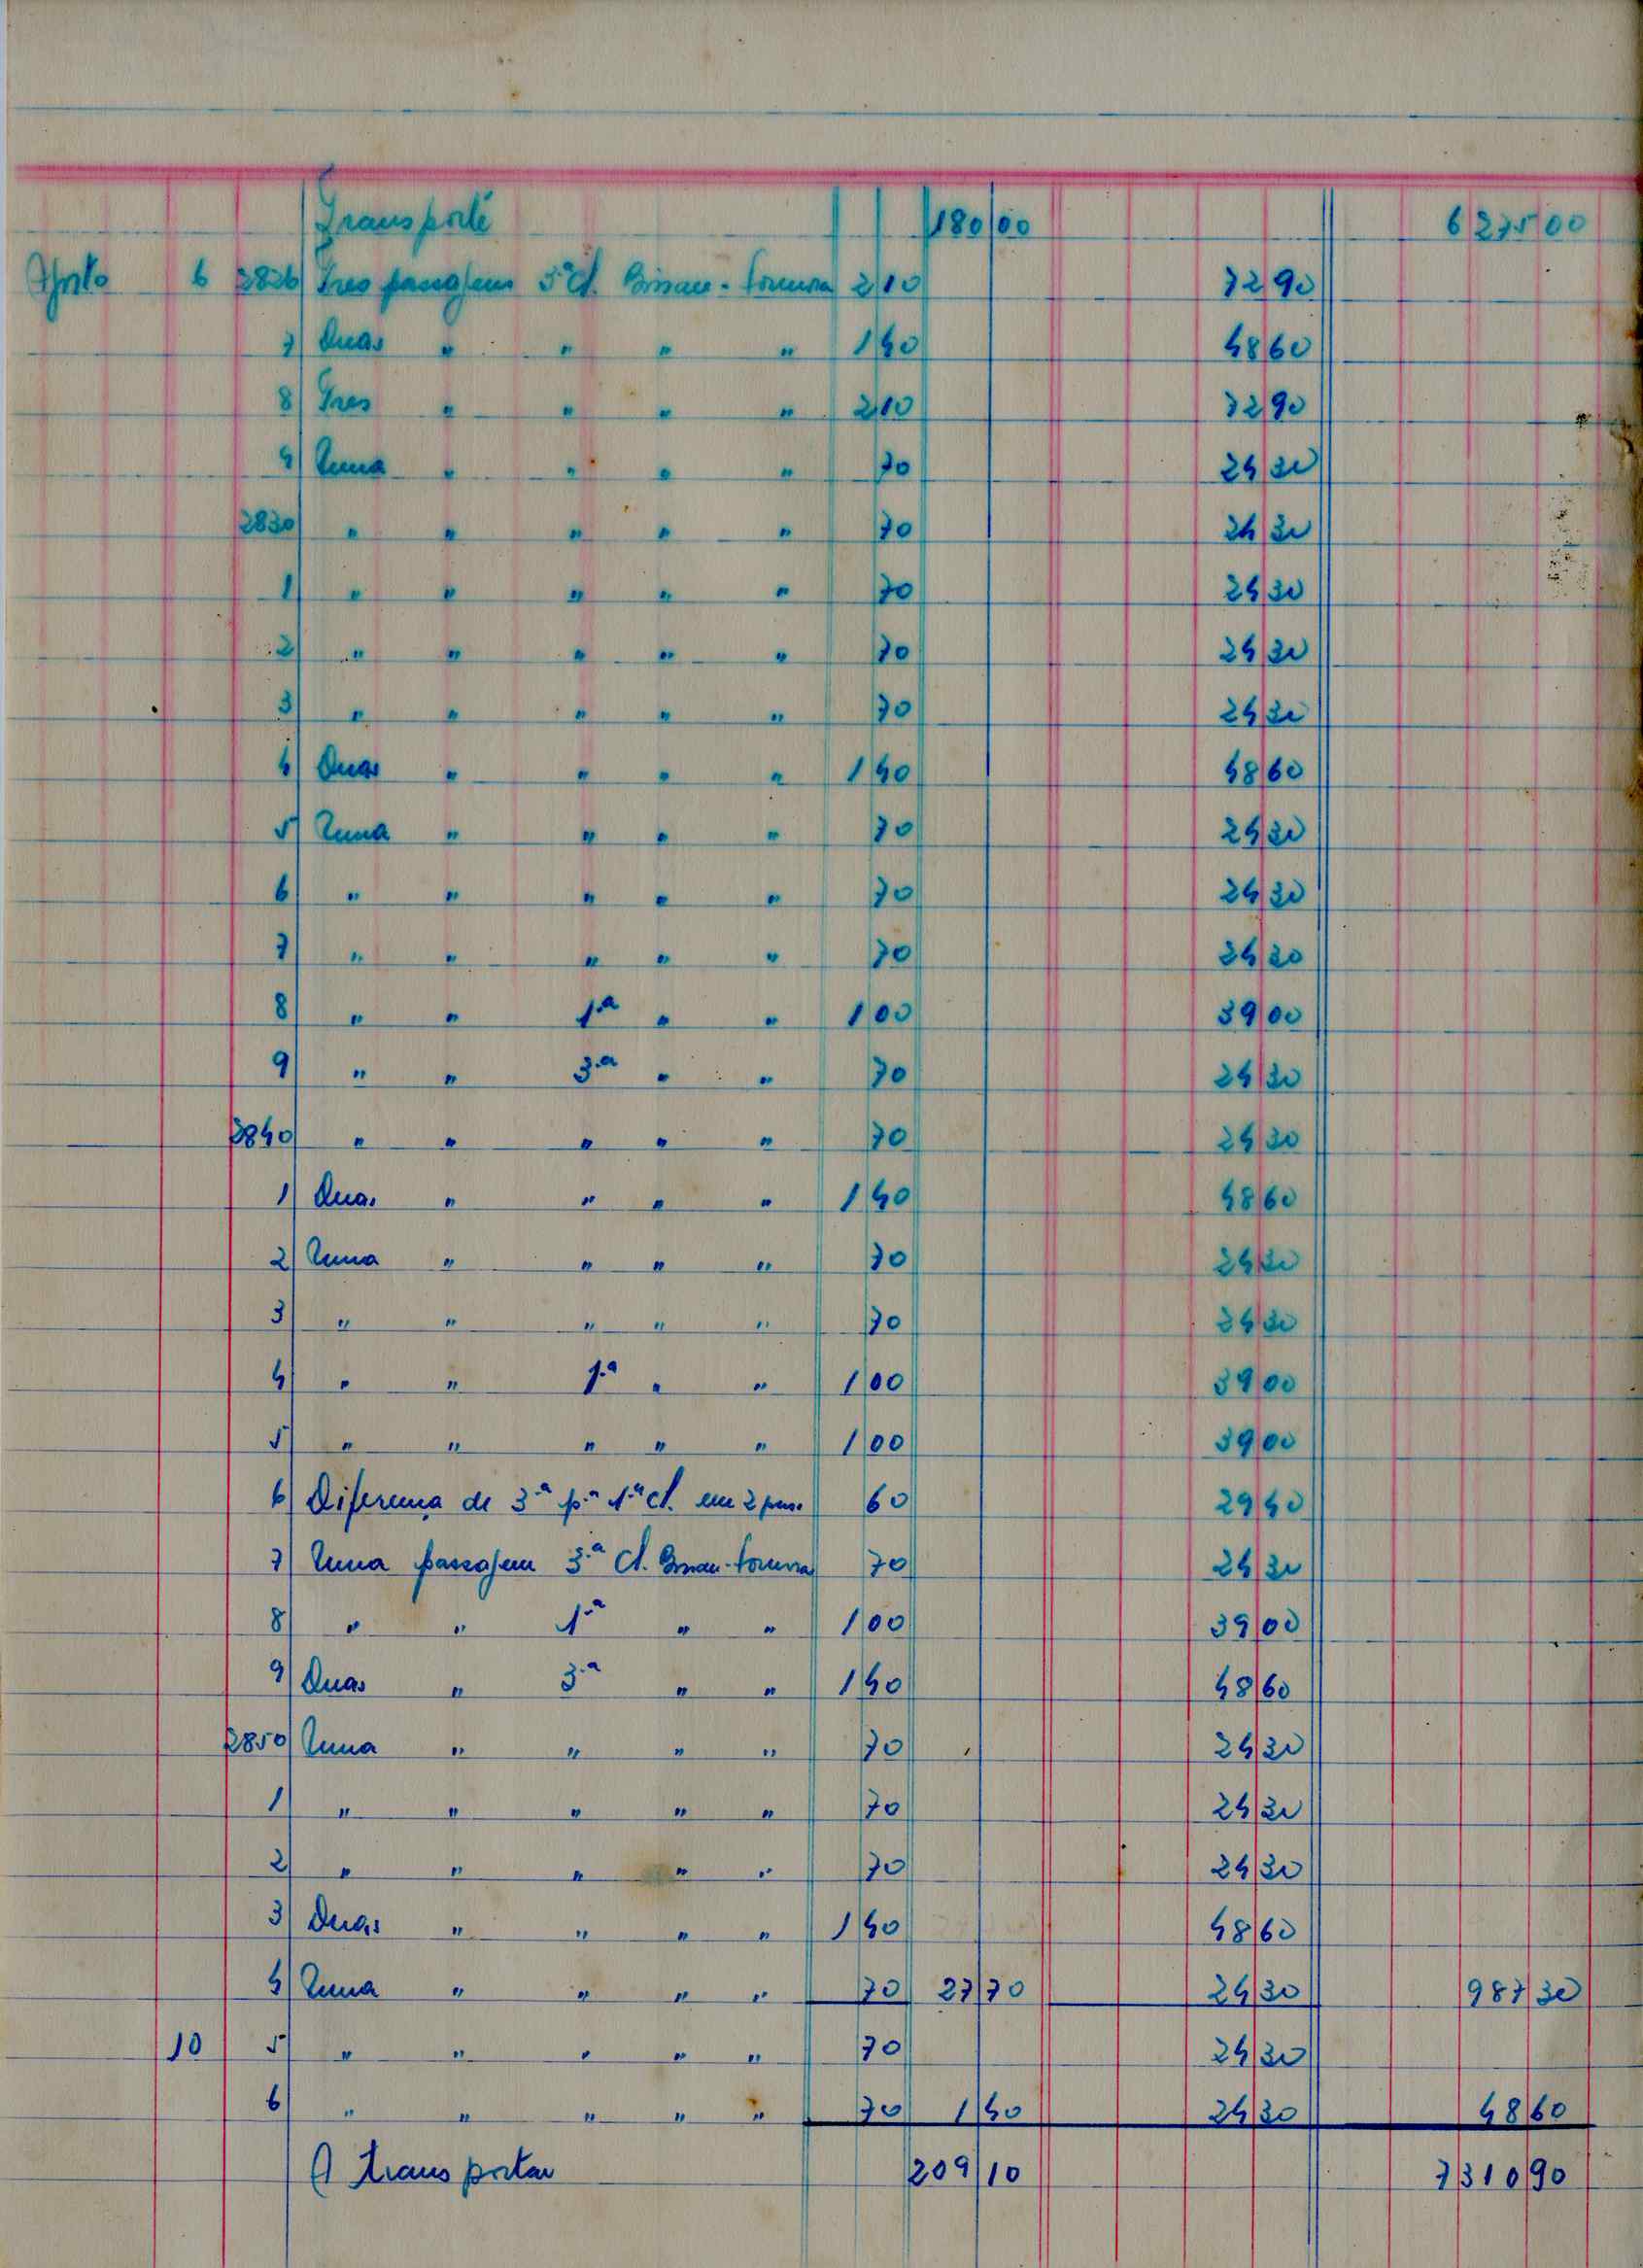 Transporte 180 00 6 275 00
Agosto 6 2826 Tres passagens 3.ª Cl. Bissau - 2 10 72 90
7 Duas " " " " 1 40 48 60
8 Tres " " " " 2 10 72 90
9 Uma " " " " 70 24 30
2830 " " " " " 70 24 30
1 " " " " " 70 24 30
2 " " " " " 70 24 30
3 " " " " " 70 24 30
4 Duas " " " " 1 40 48 60
5 Uma " " " " 70 24 30
6 " " " " " 70 24 30
7 " " " " " 70 24 30
8 " " 1.ª " " 1 00 39 00
9 " " 3.ª " " 70 24 30
2840 " " " " " 70 24 30
1 Duas " " " " 1 40 48 60
2 Uma " " " " 70 24 30
3 " " " " " 70 24 30
4 " " 1.ª " " 1 00 39 00
5 " " " " " 1 00 39 00
6 Diferença de 3.ª p.ª 1.ª cl. em 2 pass. 60 29 40
7 Uma passagem 3.ª Cl. Bissau - 70 24 30
8 " " 1.ª " " 1 00 39 00
9 Duas " 3.ª " " 1 40 48 60
2850 Uma " " " " 70 24 30
1 " " " " " 70 24 30
2 " " " " " 70 24 30
3 Duas " " " " 1 40 48 60
4 Uma " " " " 70 27 70 24 30 987 30
10 5 " " " " " 70 24 30
6 " " " " " 70 1 40 24 30 48 60
A transportar 209 10 7 310 90